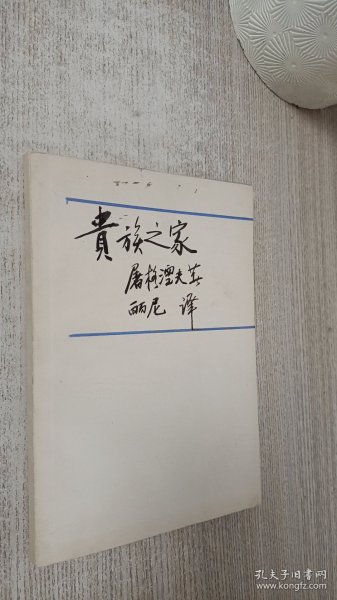 貴族之家
屠格涅夫著
丽尼 译
孔夫子旧书网
www.kongfz.com